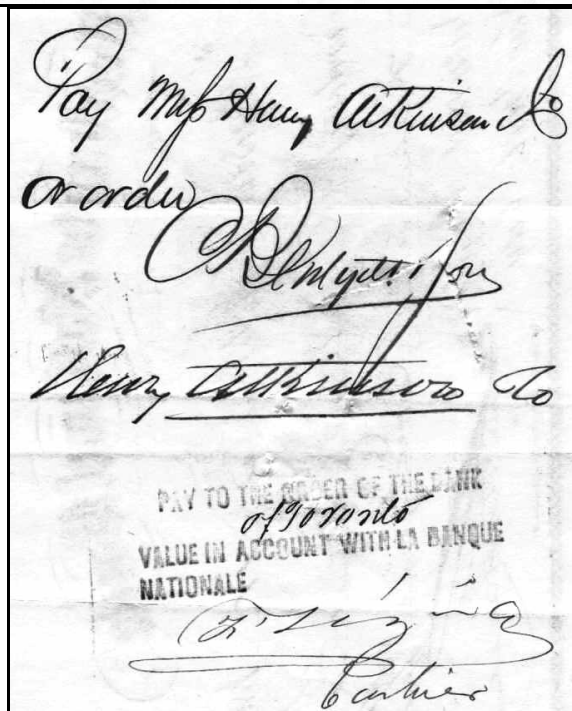 Pay Mess Henry Atkinson & Co
or order
Henry Atkinson & Co
PAY TO THE ORDER OF THE BANK
of Toronto
VALUE IN ACCOUNT WITH LA BANQUE
NATIONALE
Cashier